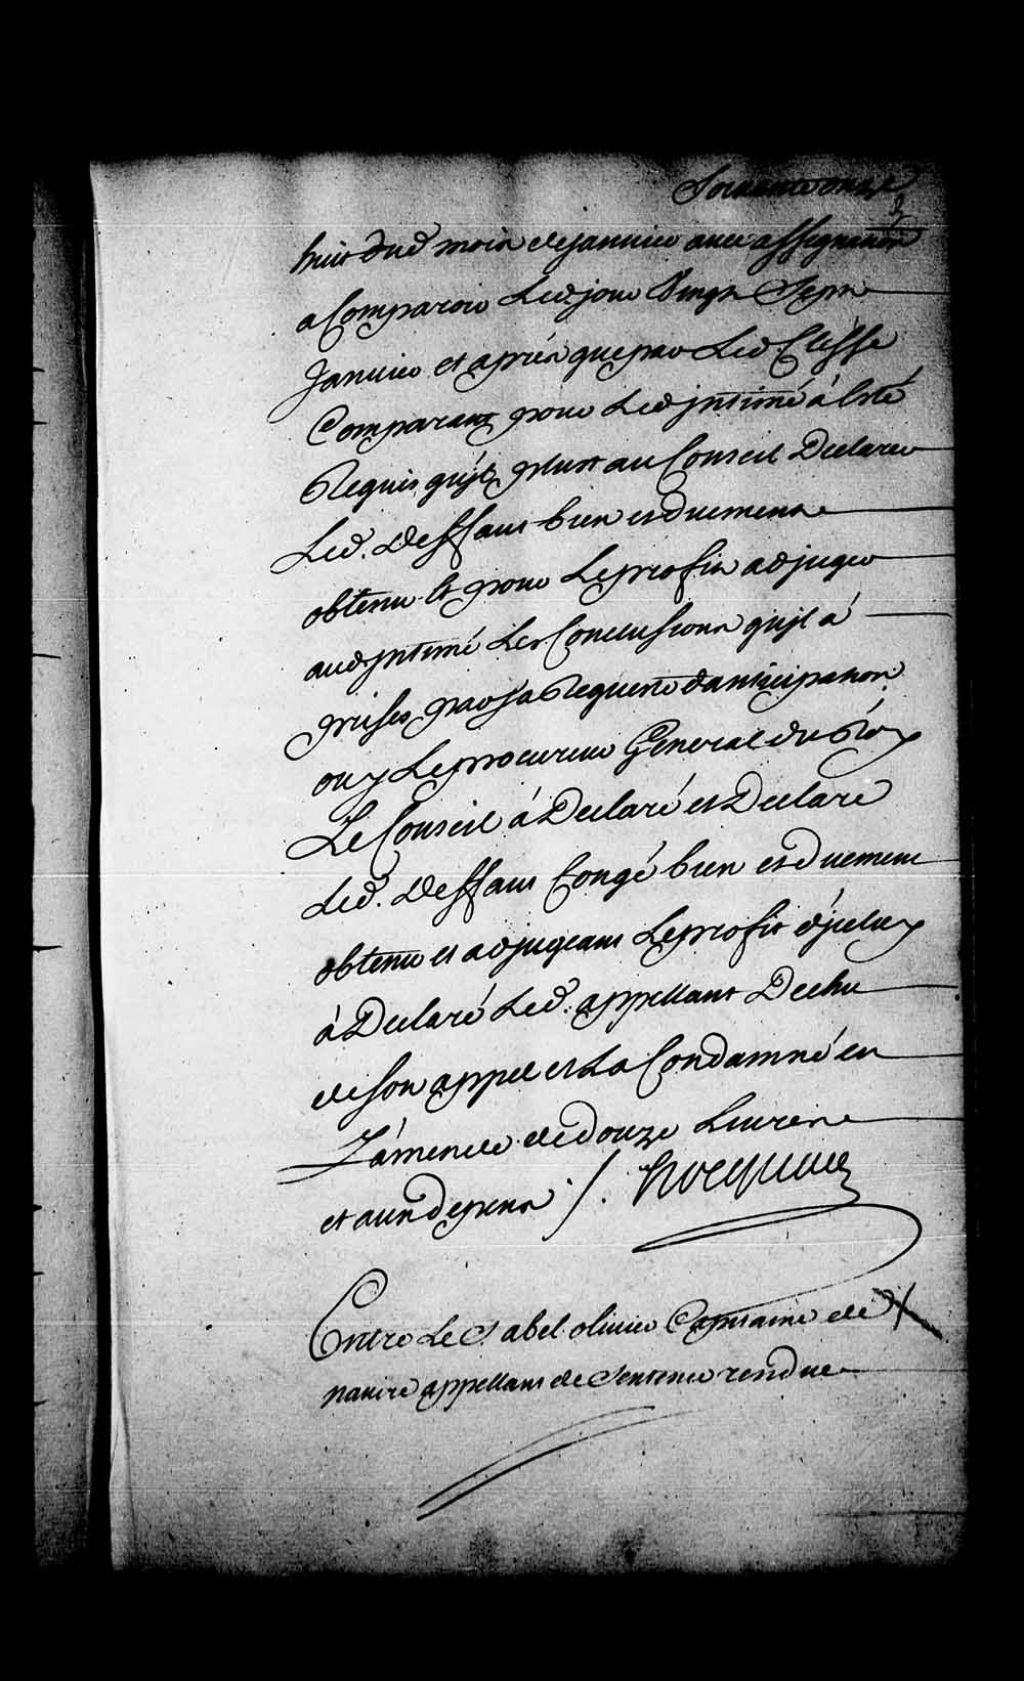 Soixante onze
huit dud. mois de janvier avec assignaon
a Comparoir Led. jour Vingt Sept
Janvier et après que par Led Clesse
Comparant pour Led jntimé à Esté
Requis qu'jl plust au Conseil Declarer
Led. Deffaut bien et duement
obtenu et pour Le profit adjuger
aud. jntimé Les Conclusions qu'jl a
prises par sa Requeste d'anticipation
ouy Le procureur General du Roy
Le Conseil à Declaré et Declare
Led. Deffaut Congé bien et duement
obtenu et adjugeant Le profit d'jceluy
à Declaré Led. appellant Dechu
de son appel et La Condamné en
L'amende de douze Livres
et aux depens /. Hocquart
Entre Le S. abel olivier Capitaine de
navire appellant de Sentence rendue